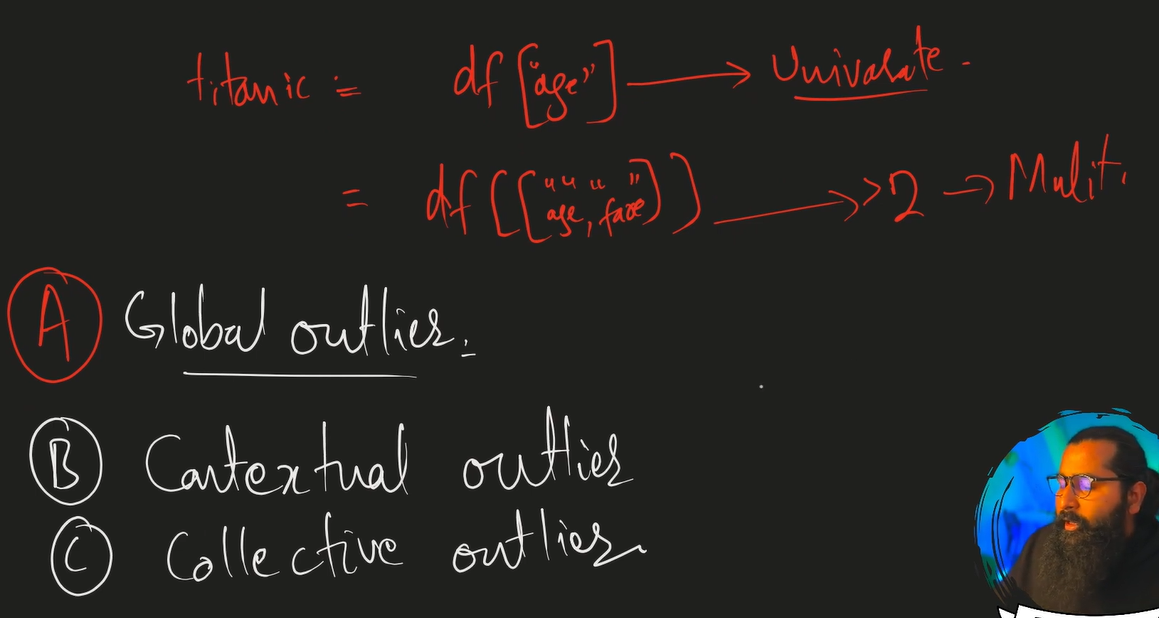 titanic = df["age"] → Univarate.
= df[["age", "fare"]] → >2 → Mulit.
A Global outlier.
B Contextual outlier
C Collective outlier.